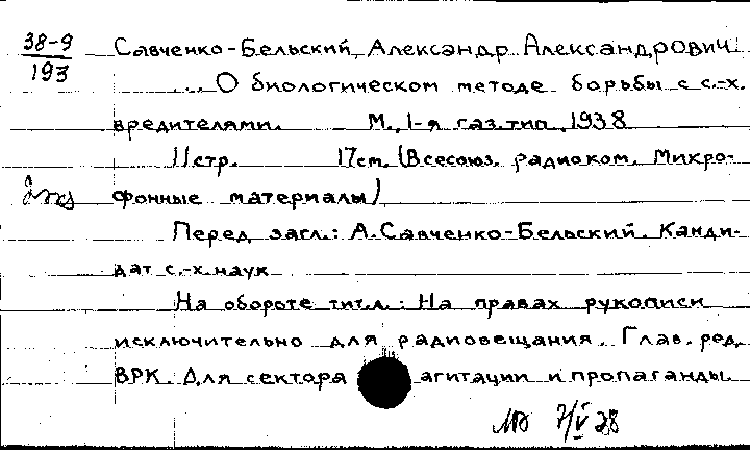 38-9
193
Савченко-Бельский, Александр Александрович.
... О биологическом методе борьбы с с.-х.
вредителями. М., 1-я газ.тип., 1938
11 стр. 17 см. (Всесоюз. радиоком. Микро-
фонные материалы)
Перед загл.: А.Савченко-Бельский. Канди-
дат с.-х. наук
На обороте тит.л.: На правах рукописи
исключительно для радиовещания. Глав. ред.
ВРК. Для сектора агитации и пропаганды.
7/V 38